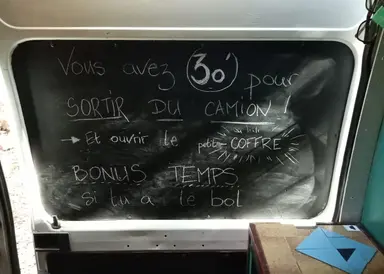 Vous avez 30' pour
SORTIR DU CAMION !
→ Et ouvrir le petit COFFRE
BONUS TEMPS
si tu a le bol